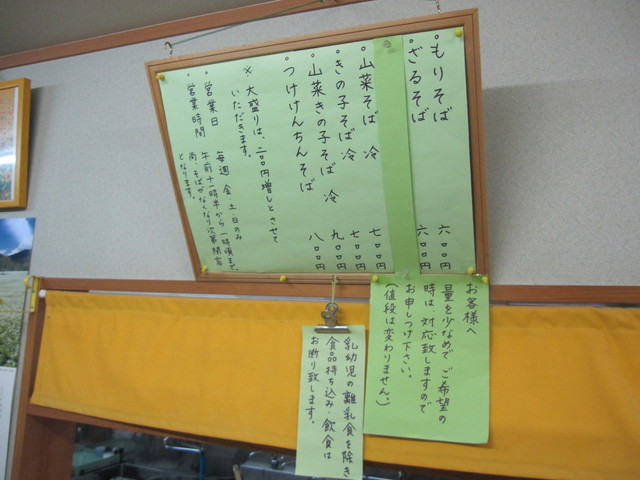 ・もりそば 六〇〇円
・ざるそば 六〇〇円
・山菜そば 冷 七〇〇円
・きの子そば 冷 七〇〇円
・山菜きの子そば 冷 九〇〇円
・つけけんちんそば 八〇〇円
※ 大盛りは、二〇〇円増しとさせて
いただきます。
・営業日 毎週 金 土 日のみ
・営業時間 午前十一時半から 一時頃まで、
尚、そばがなくなり次第閉店
となります。
お客様へ
量を少なめで ご希望の
時は 対応致しますので
お申しつけ下さい。
(値段は変わりません。)
乳幼児の離乳食を除き
食品持ち込み・飲食は
お断り致します。